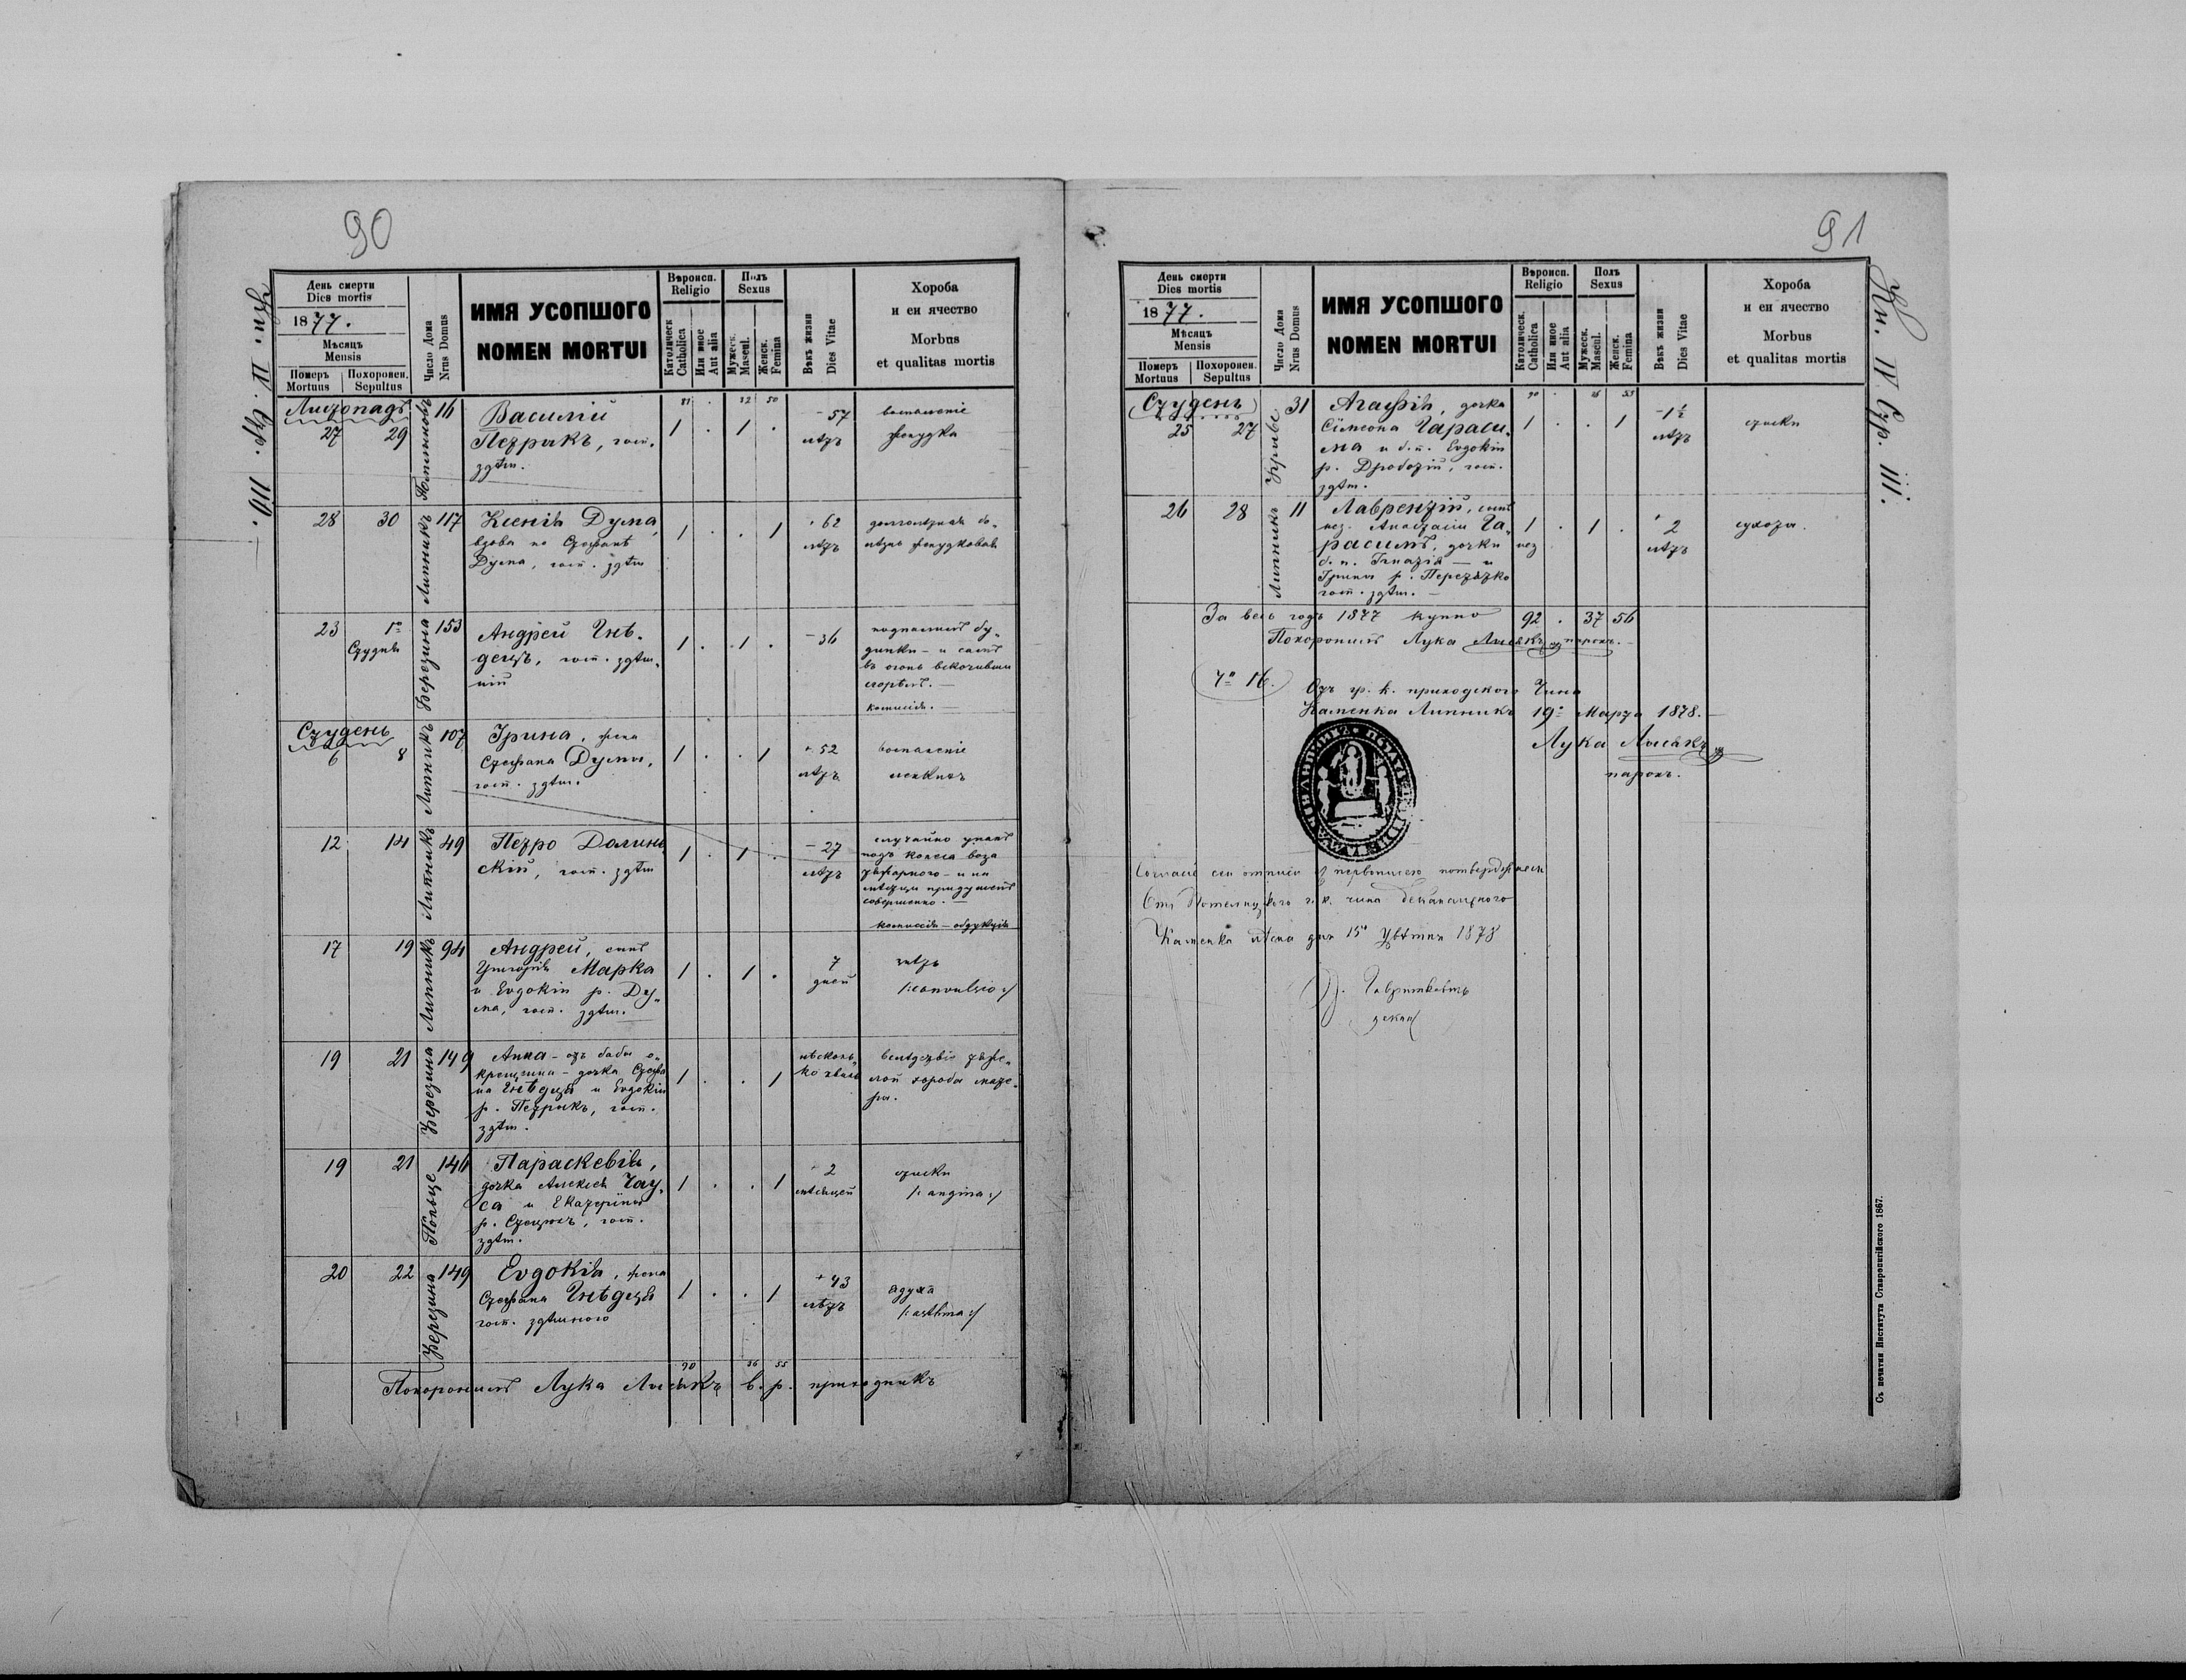 90
Кн. IV. Стр. 110.
День смерти
Dies mortis
1877.
Мѣсяцъ
Mensis
Померъ
Mortuus
Похоронен.
Sepultus
Число Дома
Nrus Domus
ИМЯ УСОПШОГО
NOMEN MORTUI
Вѣроисп.
Religio
Католическ
Catholica
Или иное
Aut alia
Полъ
Sexus
Мужеск.
Mascul.
Женск.
Femina
Вѣкъ жизни
Dies Vitae
Хороба
и еи ячество
Morbus
et qualitas mortis
Листопадъ
27 29 16
Василій
Петрикъ, госп.
здѣш.
1 . 1 .
57
лѣтъ
воспаленіе
жолудка
28 30 Липникъ 117
Ксенія Дума,
вдова по Стефанѣ
Дума, госп. здѣш
1 . . 1
62
лѣтъ
долголѣтная бо-
лѣзнь жолудковая
23 1го
Студня
Березина 153
Андрей Гнѣ-
децъ, госп. здѣш-
ній
1 . 1 .
36
подпаливъ бу-
динки - и самъ
въ огонь вскочивши
сгорѣлъ. —
комисія. —
Студень
6 8 Липникъ 107
Ірина, жена
Стефана Думы,
госп. здѣш.
1 . . 1
52
лѣтъ
воспаленіе
легкихъ
12 14 Липникъ 49
Петро Долинь-
скій, госп. здѣш
1 . 1 .
27
лѣтъ
случайно упавъ
подъ колеса воза
и на
мѣстци придушенъ
совершенно. —
комиссія - обдукція
17 19 Липникъ 94
Андрей, сынъ
Григорія Марка
и Евдокіи р. Ду-
ма, госп. здѣш.
1 . 1 .
7
дней
/:convulsio:/
19 21 Березина 149
Анна - отъ бабы о-
крещенна - дочка Стефа
на Гнѣдеця и Евдокіи
р. Петрикъ, госп.
здѣш.
1 . . 1
нѣсколь-
ко хвиль
вслѣдствіе тяже-
лой хоробы мате-
ри.
19 21 Польце 146
Параскевія,
дочка Алексія Гау-
са и Екатерины
р. Стецюкъ, госп.
здѣш.
1 . . 1
2
мѣсяцей
/:angina:/
20 22 Березина 149
Евдокія, жена
Стефана Гнѣдеця
госп. здѣшного
1 . . 1
43
лѣтъ
адуха
/:asthma:/
90 36 55
Похоронилъ Лука Лисякъ в. р. приходникъ
91
Кн. IV Стр. 111.
День смерти
Dies mortis
1877.
Мѣсяцъ
Mensis
Померъ
Mortuus
Похоронен.
Sepultus
Число Дома
Nrus Domus
ИМЯ УСОПШОГО
NOMEN MORTUI
Вѣроисп.
Religio
Католическ.
Catholica
Или иное
Aut alia
Полъ
Sexus
Мужеск.
Mascul.
Женск.
Femina
Вѣкъ жизни
Dies Vitae
Хороба
и еи ячество
Morbus
et qualitas mortis
Студень
25 27 31
Агафія, дочка
Сімеона Гараси-
ма и б.п. Евдокіи
р. Дроботій, госп.
здѣш.
1 . . 1
1½
лѣтъ
26 28 Липникъ 11
Лаврентій, сынъ
нез. Анастасіи Га-
расимъ, дочки
б. п. Игнатія — и
Ірины р.
госп. здѣш. —
1 . 1 .
нез
2
лѣтъ
сухоты.
За весь годъ 1877 купно 92 . 37 56
Похоронилъ Лука Лисякъ парохъ.
Ч° 16.
Отъ гр. к. приходского Чина
Каменка Липникъ 19го Марта 1878. —
Лука Лисякъ
парохъ.
Согласіе сеи отписи съ первописею потверджаеся
Отъ г. к. чина деканального
Каменка дня 15го Цвѣтня 1878
декан
Съ печатни Института Ставропигійского 1867.